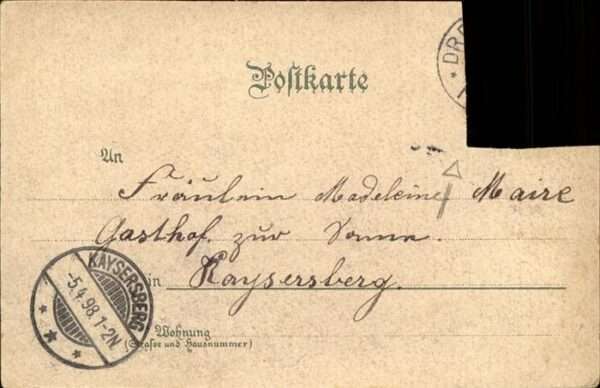 Postkarte
DR
An
Fräulein Madeleine Maire
Gasthof. zur Sonne.
in Kaysersberg.
KAYSERSBERG
-5.4.98.1-2N
Wohnung
(Straße und Hausnummer)